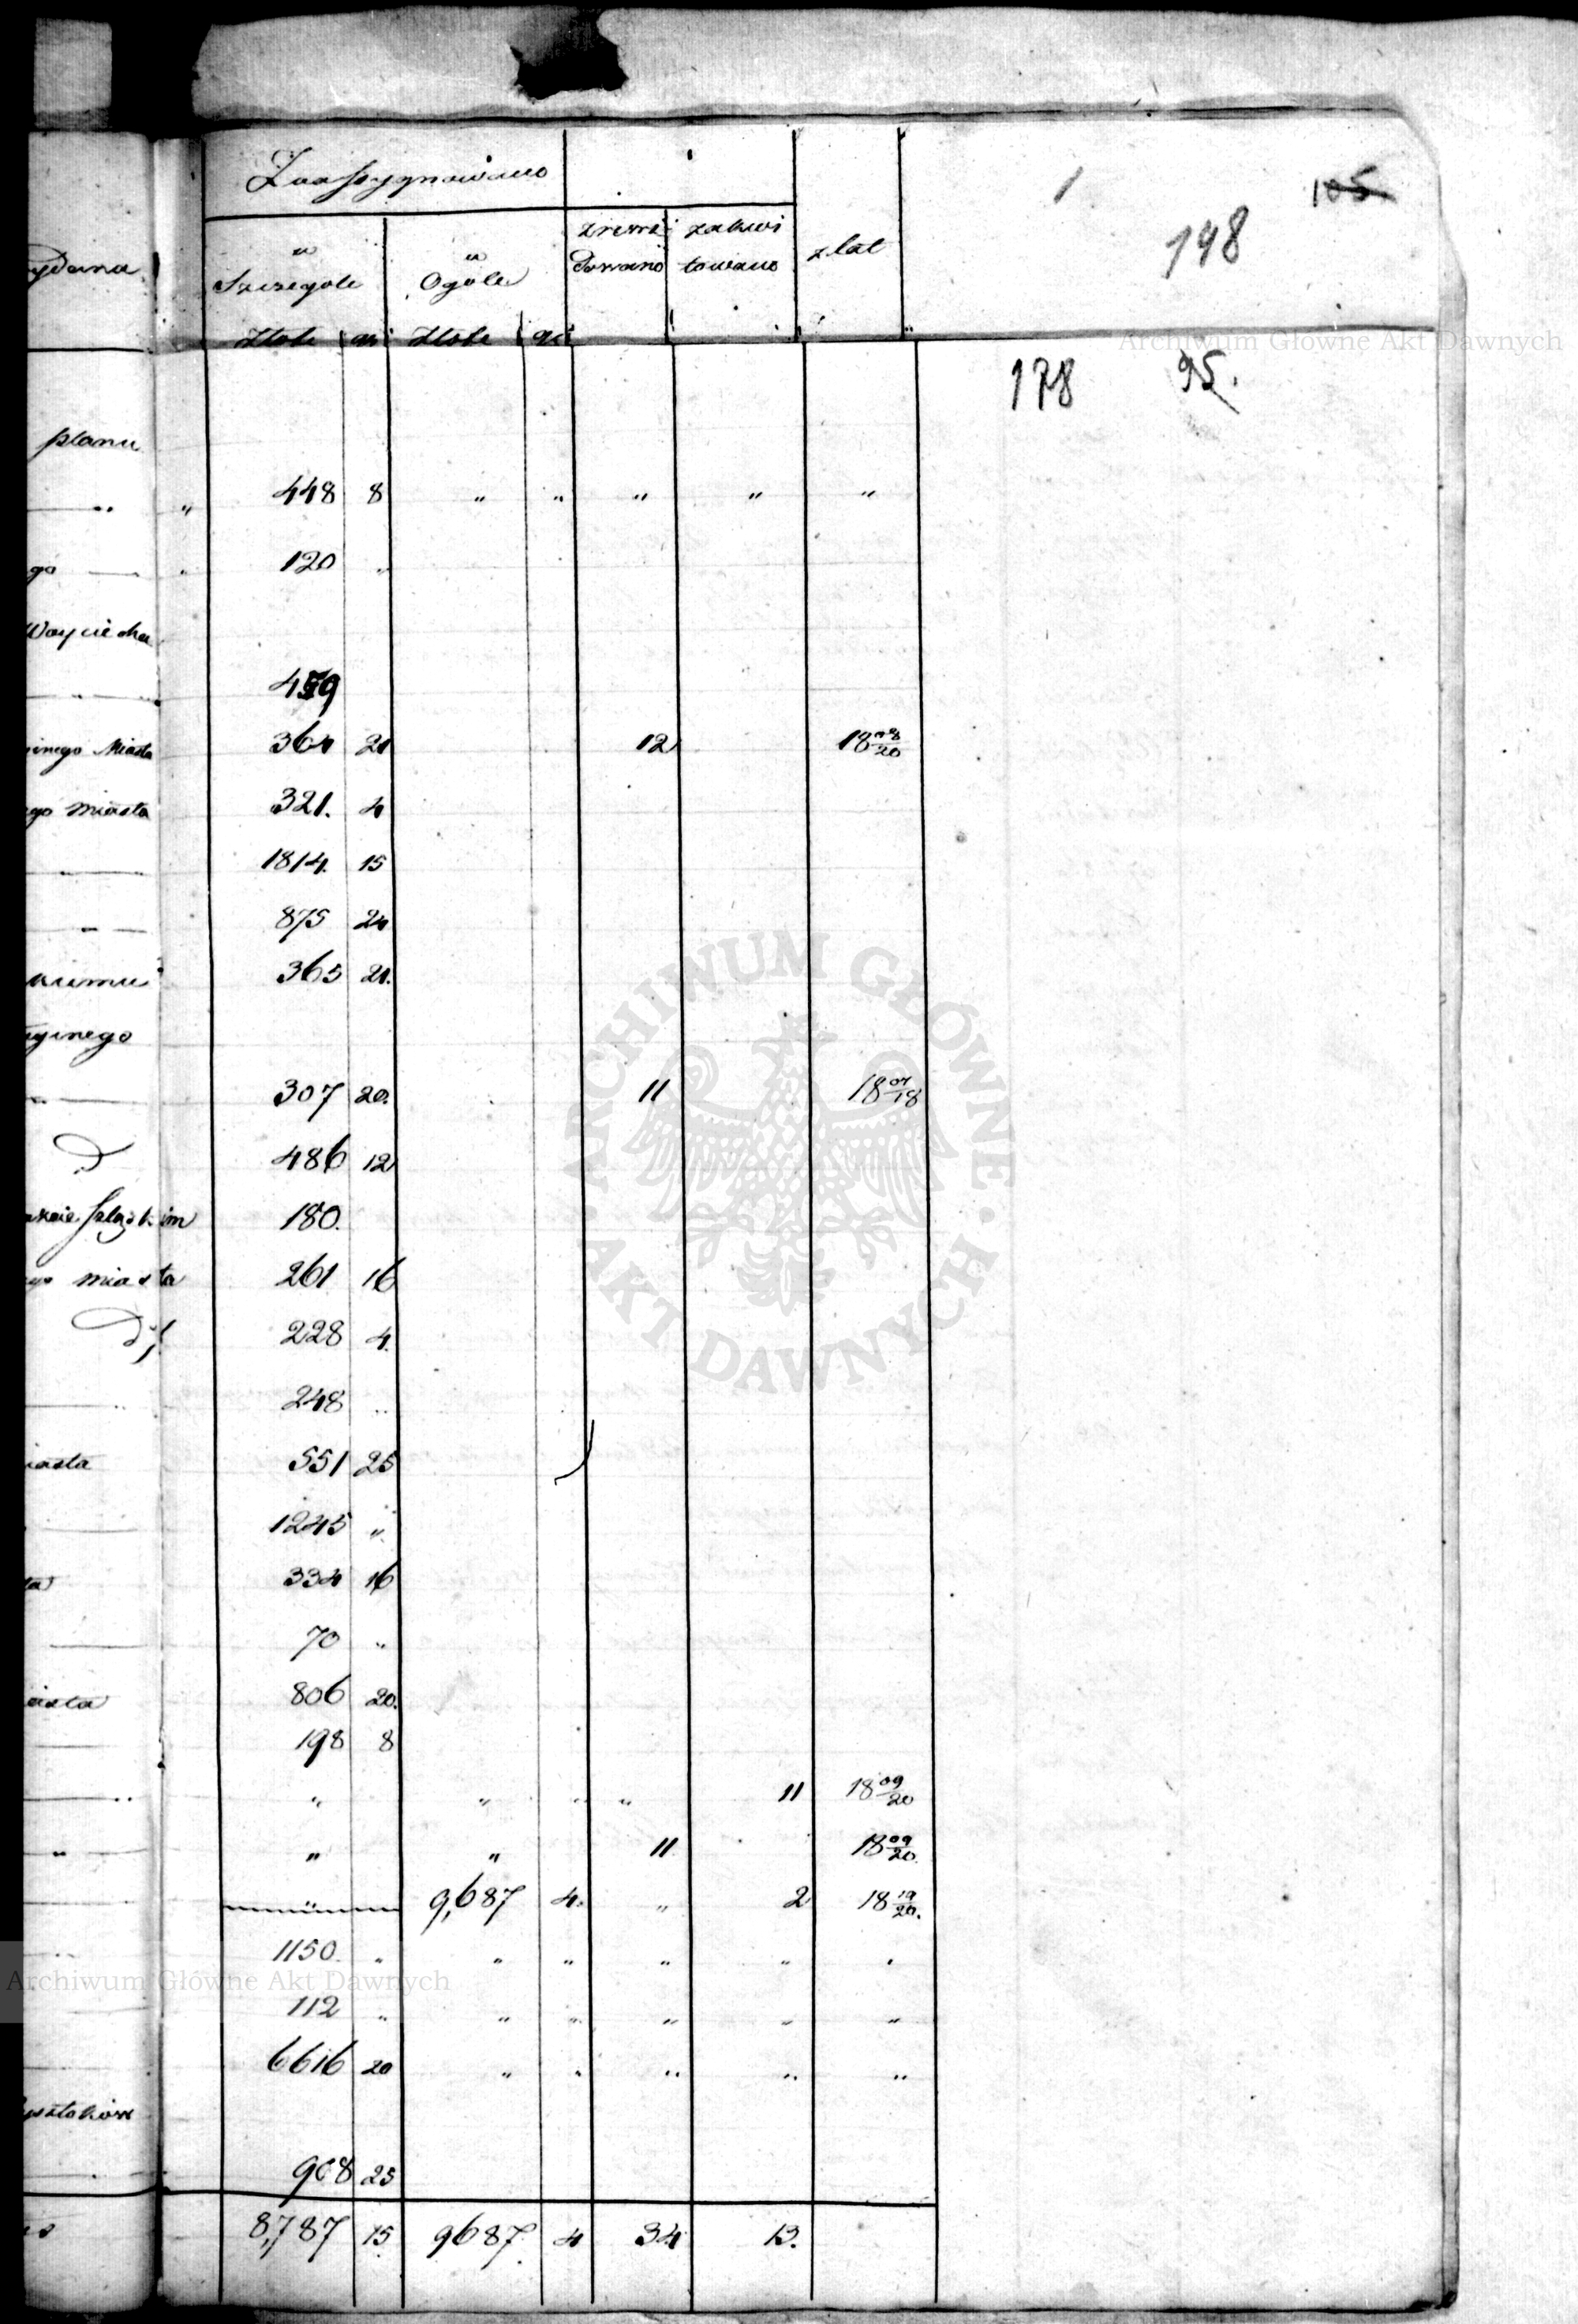 Zaassygnowano
1
105
198
w Szczegole
w Ogóle
zrewi
dowano
zakwi
towano
z lat
złote gr złote gr
Archiwum Główne Akt Dawnych
178 95.
planu
„ 448 8 „ „ „ „ „
go 120 „
Woyciecha
459
Miasta 364 21 12 18 08/20
go miasta 321. 4
1814. 15
875 24
365 21.
307 20. 11 18 07/18
D 486 12
im 180.
miasta 261 16
228 4.
248 „
iasta 551 25
1245 „
ta 334 16
70 „
iasta 806 20.
198 8
„ „ „ „ 11 18 09/20
„ „ „ 11 18 09/20.
„ 9,687 4. „ 2 18 19/20.
1150. „ „ „ „ „ „
Archiwum Główne Akt Dawnych
112 „ „ „ „ „ „
6616 20 „ „ „ „ „
908 25
8,787 15. 9687 4 34 13.
ARCHIWUM GŁÓWNE · AKT DAWNYCH ·